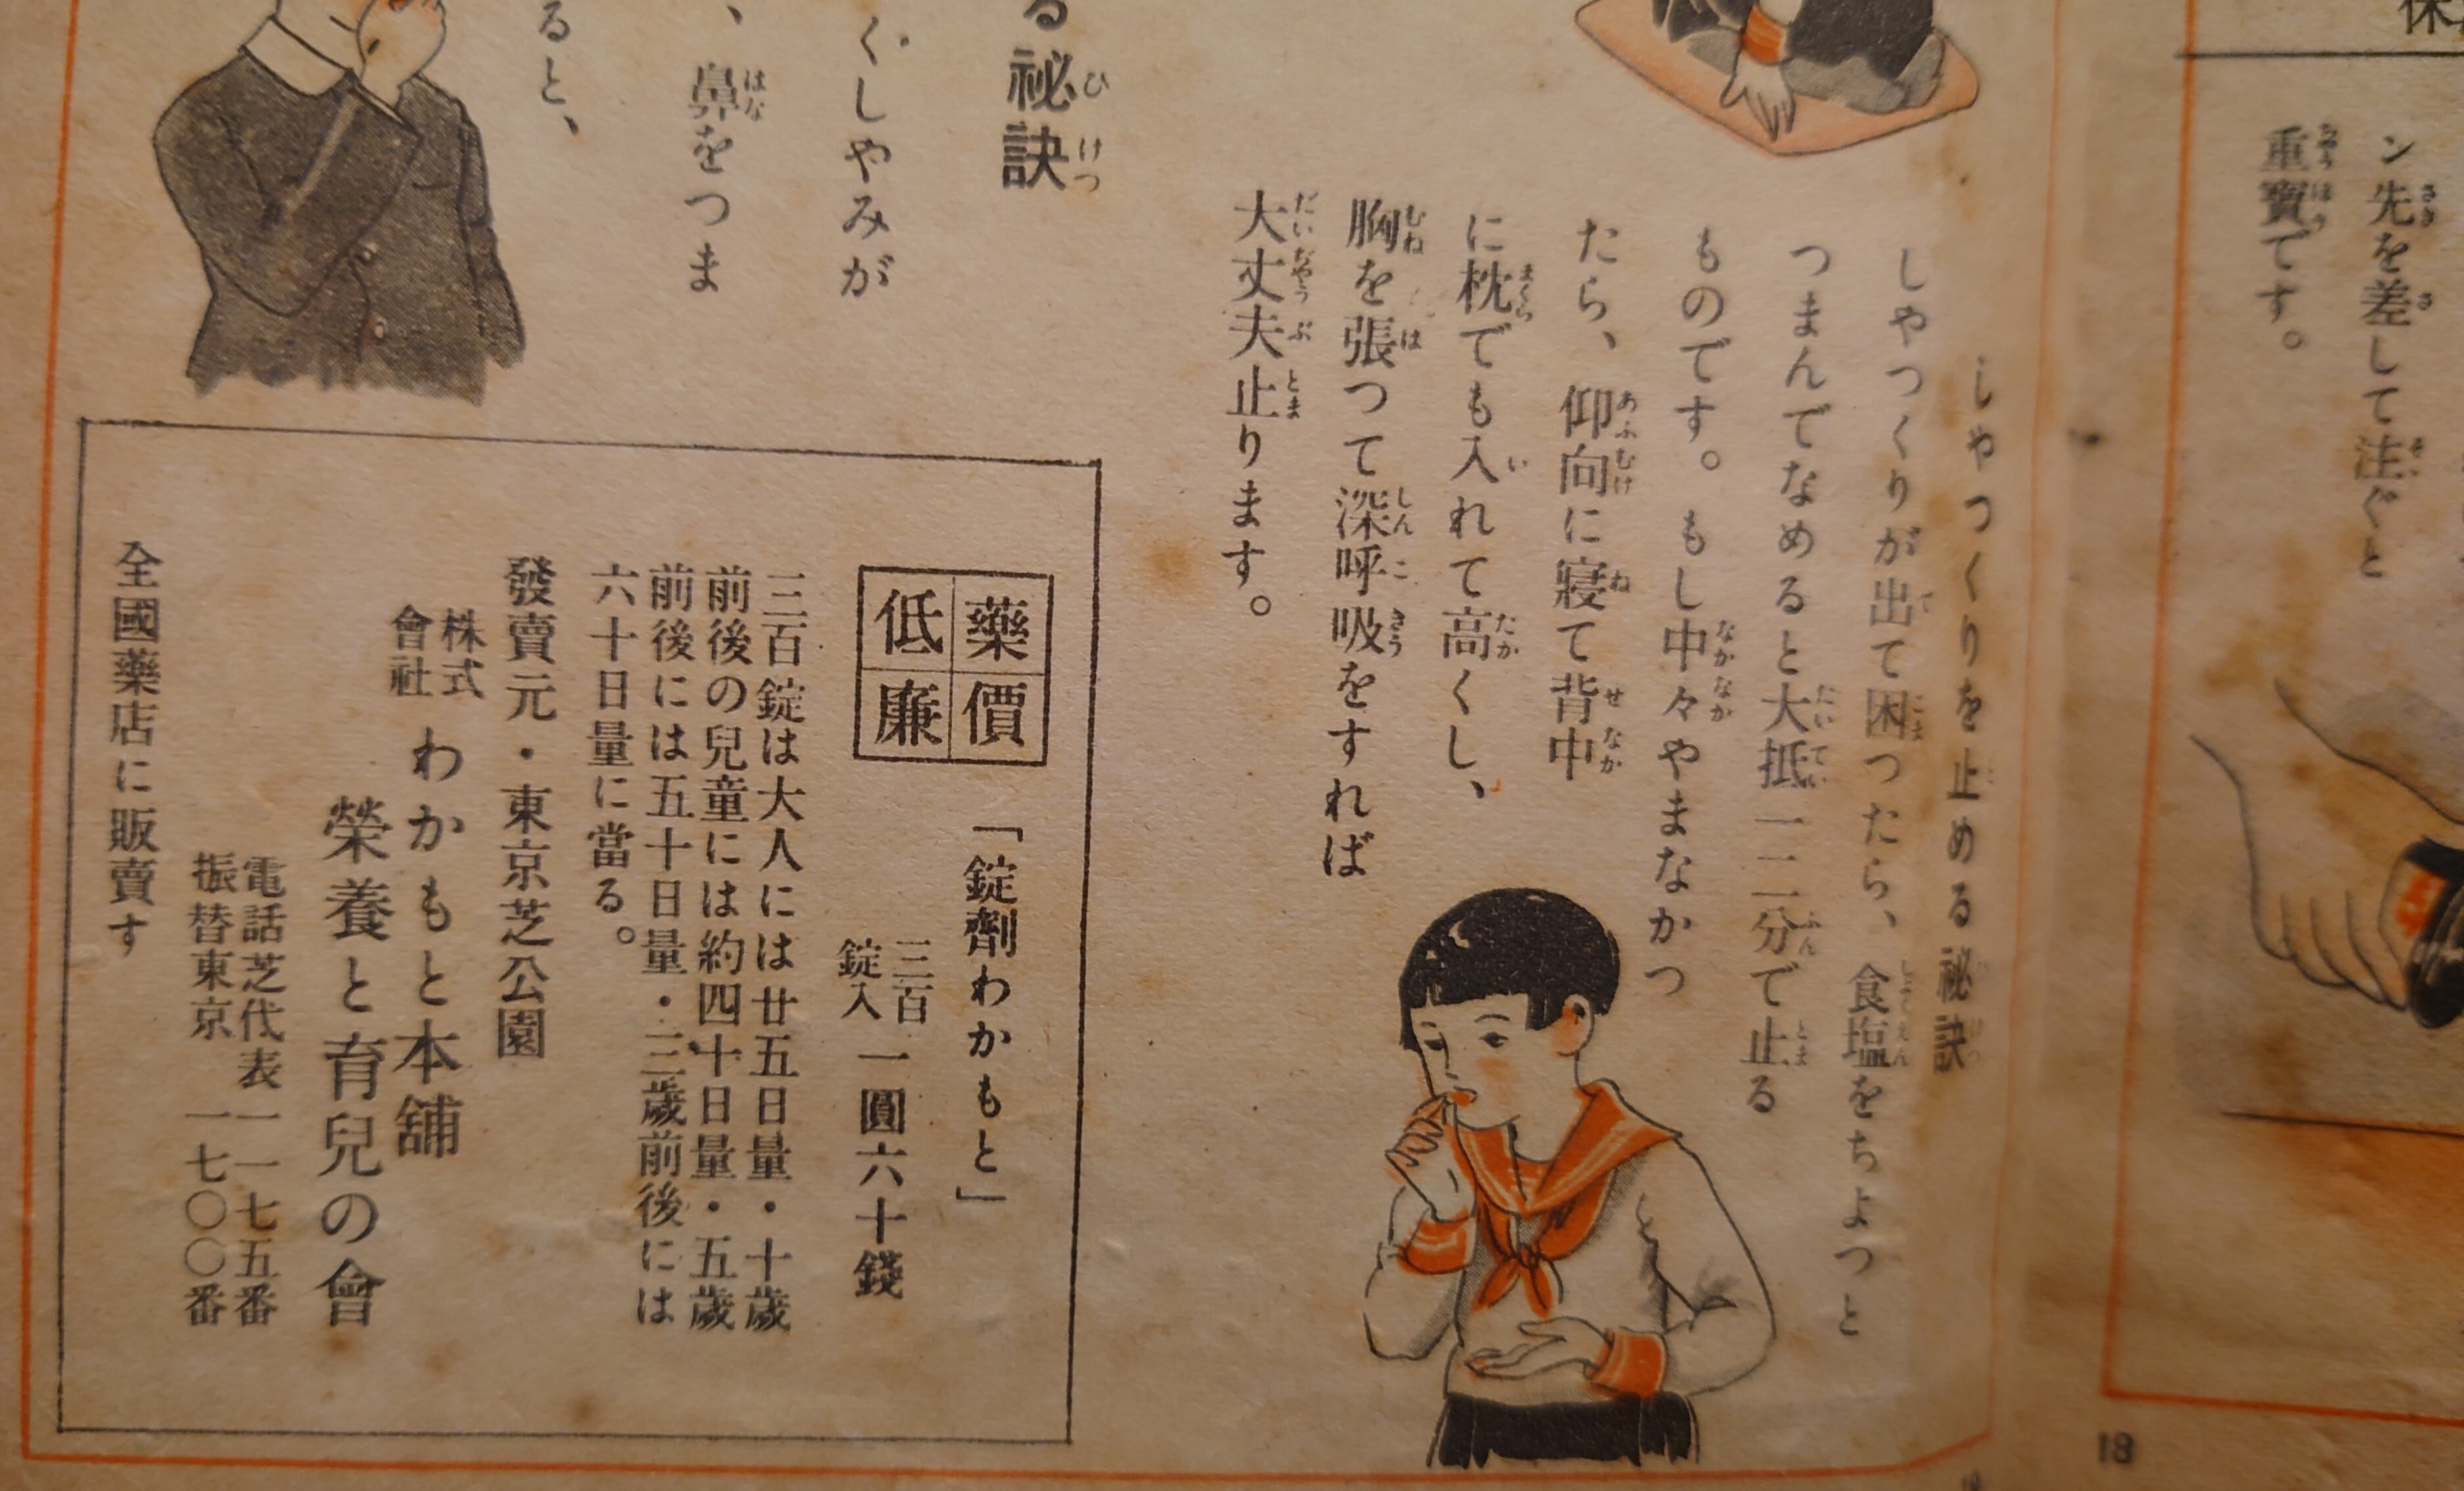 ン先を差して注ぐと
重寶です。
しやつくりを止める祕訣
しやつくりが出て困つたら、食塩をちよつと
つまんでなめると大抵一二分で止る
ものです。もし中々やまなかつ
たら、仰向に寝て背中
に枕でも入れて高くし、
胸を張つて深呼吸をすれば
大丈夫止ります。
る祕訣
くしやみが
、鼻をつま
ると、
藥價低廉
「錠劑わかもと」
三百錠入 一圓六十錢
三百錠は大人には廿五日量・十歲
前後の兒童には約四十日量・五歲
前後には五十日量・三歲前後には
六十日量に當る。
發賣元・東京芝公園
株式會社 わかもと本舖
榮養と育兒の會
電話芝代表一一七五番
振替東京 一七〇〇番
全國藥店に販賣す
18